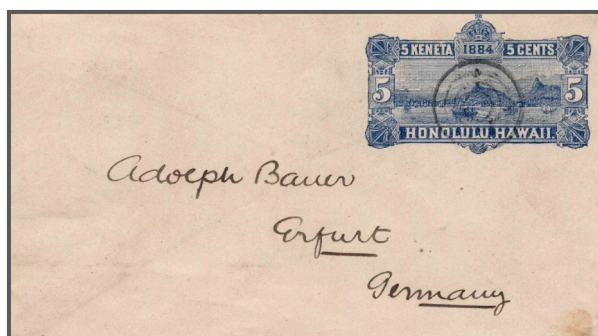 5 KENETA 1884 5 CENTS
5 5
HONOLULU, HAWAII.
Adolph Bauer
Erfurt
Germany